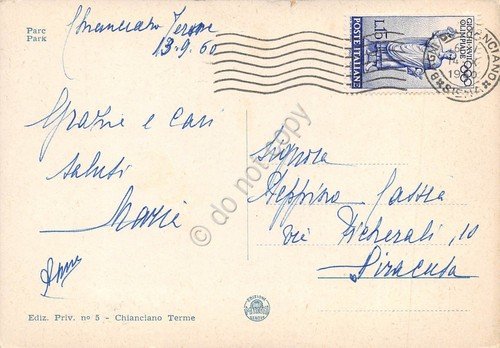 Parc
Park
Chianciano Terme
13-9-60
Grazie e cari
saluti
Maria
L.15
POSTE ITALIANE
GIOCHI DELLA XVII
OLIMPIADE
CHIANCIANO
SIENA
Signora
Peppina
via Picherali, 10
Siracusa
© do not copy
EDIZIONI
Ediz. Priv. nº 5 - Chianciano Terme